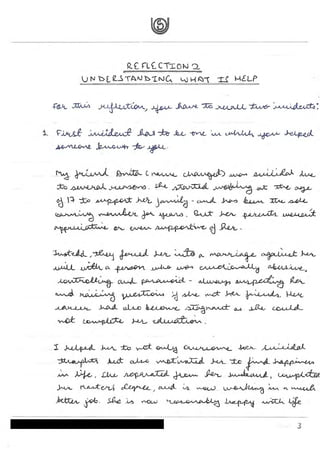 REFLECTION 2
UNDERSTANDING WHAT IS HELP
For this reflection, you have to recall two incidents:
1. First incident has to be one in which you helped
someone known to you.
My friend Anita (name changed) was suicidal due
to several reasons. She started working at the age
of 17 to support her family - and has been the sole
earning member for years. But her parents weren't
appreciative or even supportive of her.
Instead, they forced her into a marriage against her
will with a person who was emotionally abusive,
controlling and paranoid - always suspecting her
and raising questions if she met her friends. Her
career had also become stagnant as she could
not complete her education.
I helped her to not only overcome her suicidal
thoughts but also motivated her to find happiness
in life. She separated from her husband, completed
her master's degree, and is now working in a much
better job. She is now reasonably happy with life
3